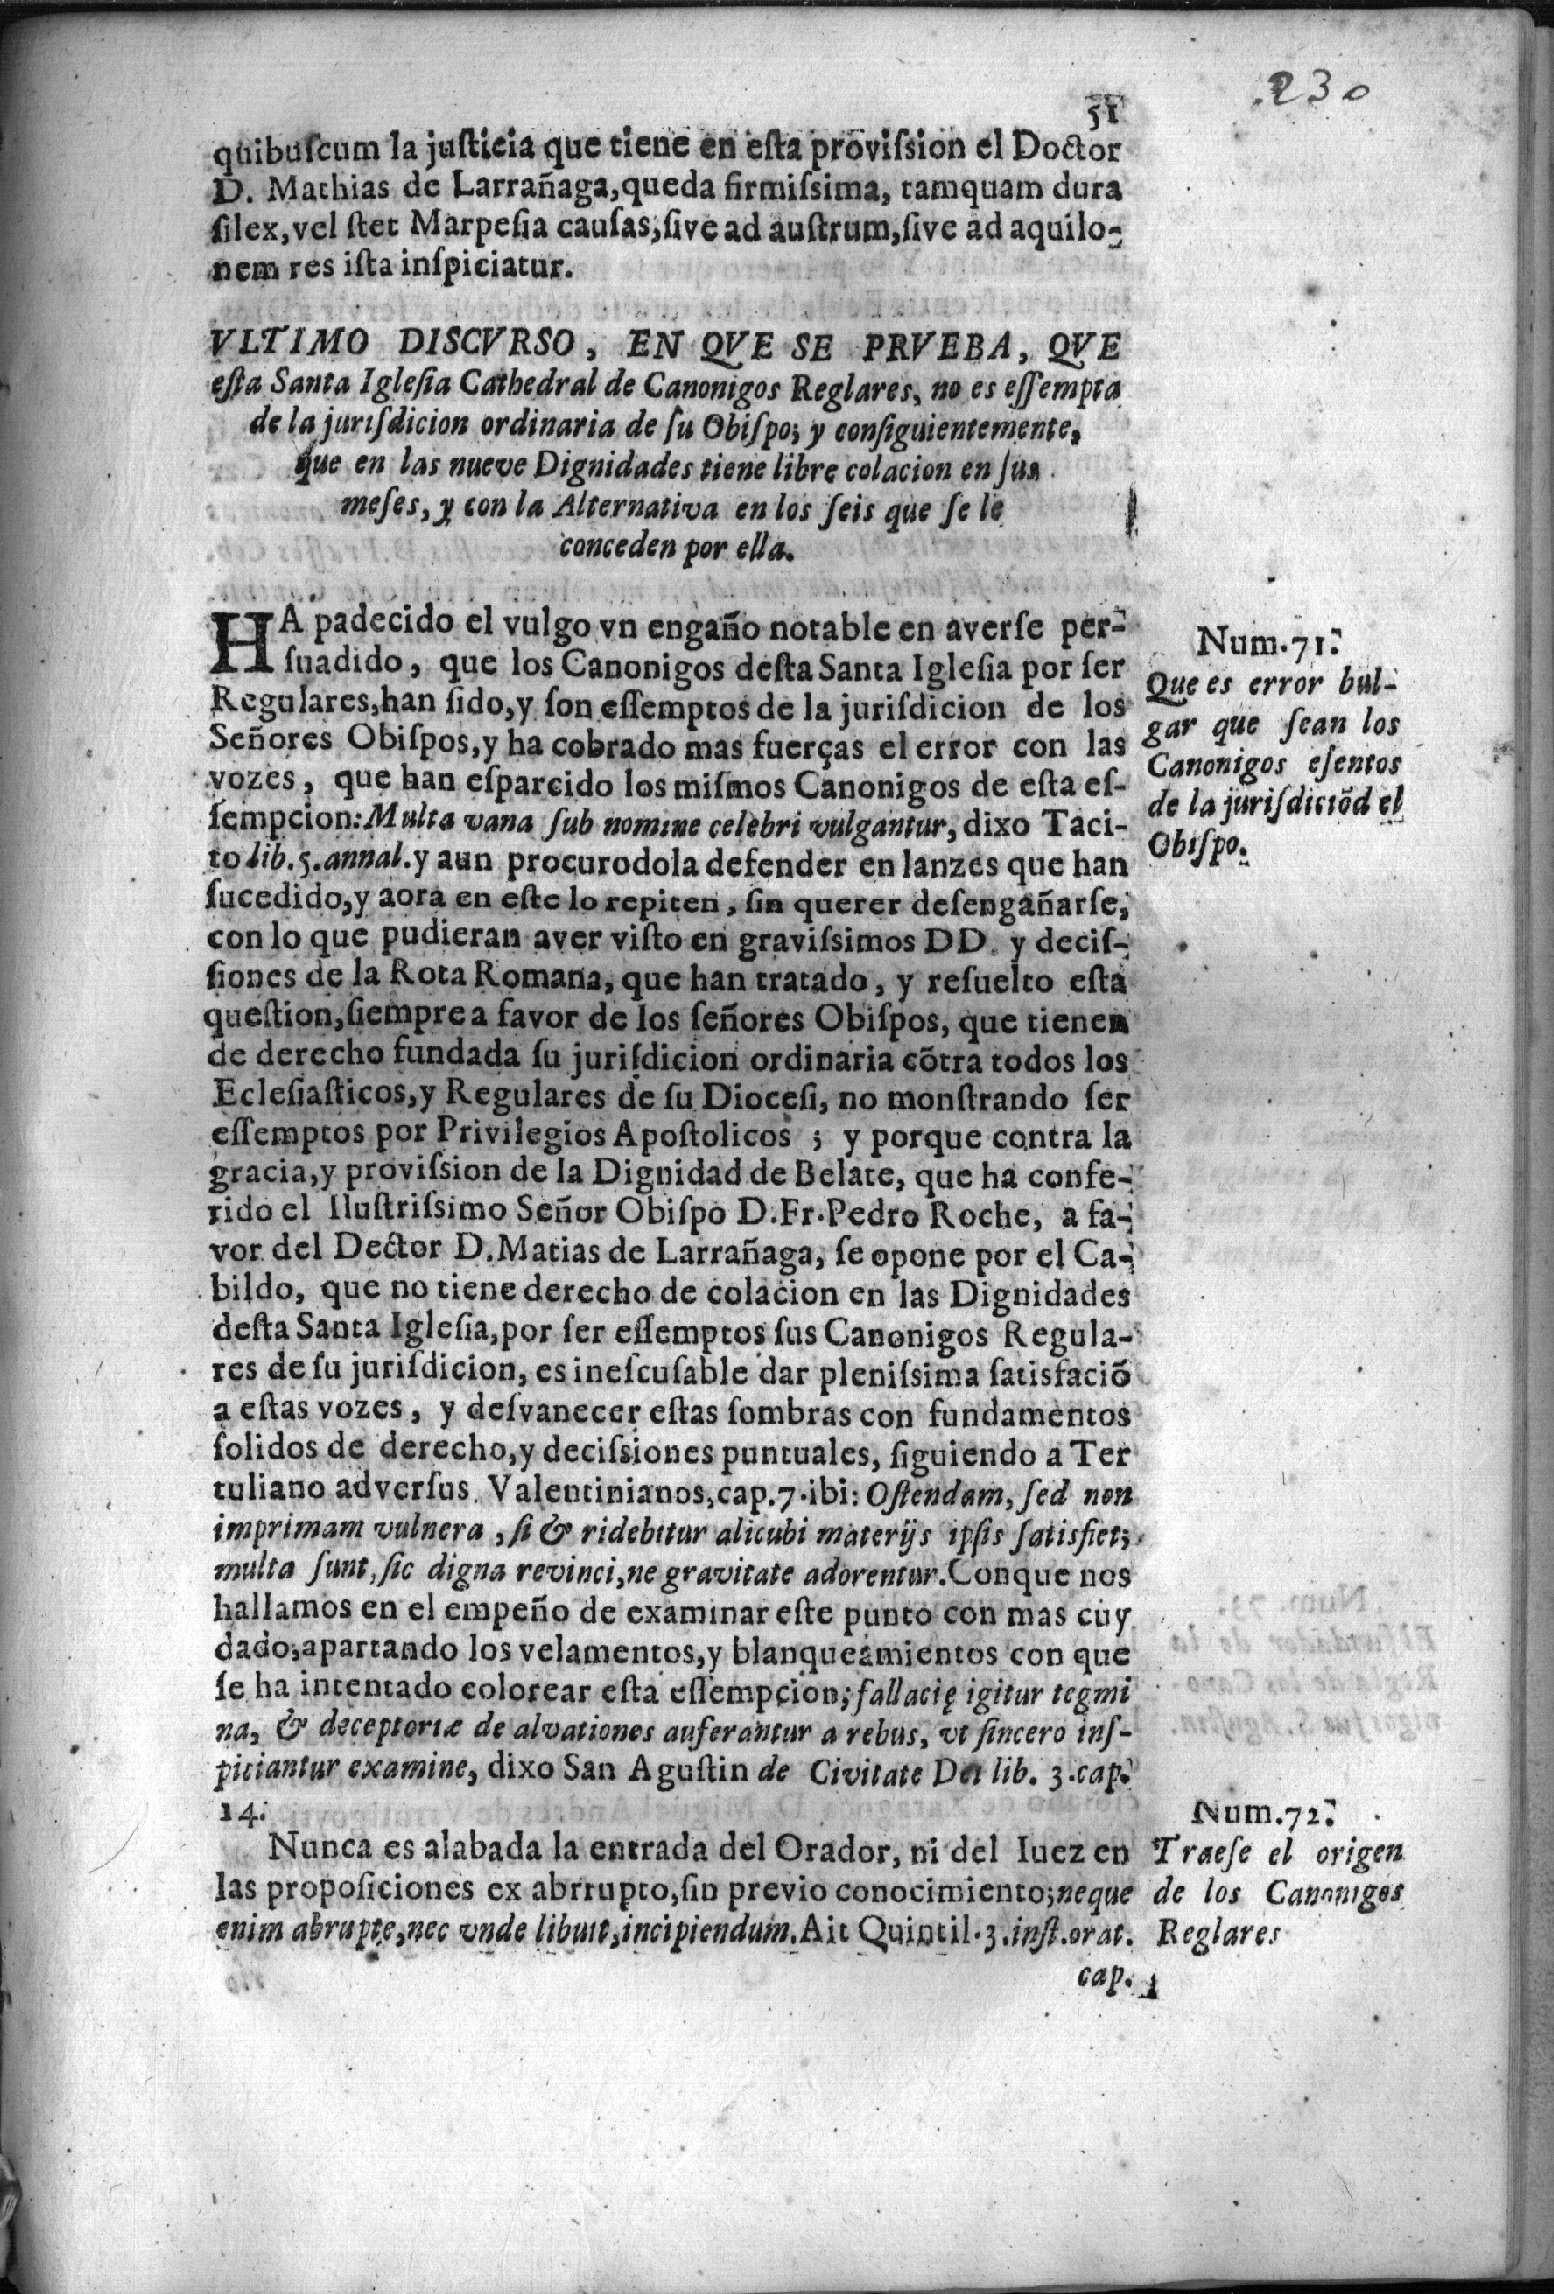 230
51
quibuſcum la juſticia que tiene en eſta proviſsion el Doctor
D. Mathias de Larrañaga, queda firmiſsima, tamquam dura
ſilex, vel ſtet Marpeſia cauſas; ſive ad auſtrum, ſive ad aquilo-
nem res iſta inſpiciatur.
VLTIMO DISCVRSO, EN QVE SE PRVEBA, QVE
eſta Santa Igleſia Cathedral de Canonigos Reglares, no es eſſempta
de la juriſdicion ordinaria de ſu Obiſpo; y conſiguientemente,
que en las nueve Dignidades tiene libre colacion en ſus
meſes, y con la Alternativa en los ſeis que ſe le
conceden por ella.
HA padecido el vulgo vn engaño notable en averſe per-
ſuadido, que los Canonigos deſta Santa Igleſia por ſer
Regulares, han ſido, y ſon eſſemptos de la juriſdicion de los
Señores Obiſpos, y ha cobrado mas fuerças el error con las
vozes, que han eſparcido los miſmos Canonigos de eſta eſ-
ſempcion: Multa vana ſub nomine celebri vulgantur, dixo Taci-
to lib. 5. annal. y aun procurodola defender en lanzes que han
ſucedido, y aora en eſte lo repiten, ſin querer deſengañarſe,
con lo que pudieran aver viſto en graviſsimos DD. y deciſ-
ſiones de la Rota Romana, que han tratado, y reſuelto eſta
queſtion, ſiempre a favor de los ſeñores Obiſpos, que tienen
de derecho fundada ſu juriſdicion ordinaria cõtra todos los
Ecleſiaſticos, y Regulares de ſu Dioceſi, no monſtrando ſer
eſſemptos por Privilegios Apoſtolicos ; y porque contra la
gracia, y proviſsion de la Dignidad de Belate, que ha confe-
rido el Iluſtriſsimo Señor Obiſpo D. Fr. Pedro Roche, a fa-
vor del Dector D. Matias de Larrañaga, ſe opone por el Ca-
bildo, que no tiene derecho de colacion en las Dignidades
deſta Santa Igleſia, por ſer eſſemptos ſus Canonigos Regula-
res de ſu juriſdicion, es ineſcuſable dar pleniſsima ſatisfaciõ
a eſtas vozes, y deſvanecer eſtas ſombras con fundamentos
ſolidos de derecho, y deciſsiones puntuales, ſiguiendo a Ter
tuliano adverſus Valentinianos, cap. 7. ibi: Oſtendam, ſed non
imprimam vulnera, ſi & ridebitur alicubi materijs ipſis ſatisfiet;
multa ſunt, ſic digna revinci, ne gravitate adorentur. Conque nos
hallamos en el empeño de examinar eſte punto con mas cuy
dado, apartando los velamentos, y blanqueamientos con que
ſe ha intentado colorear eſta eſſempcion; fallacię igitur tegmi
na, & deceptoriæ de alvationes auferantur a rebus, vt ſincero inſ-
piciantur examine, dixo San Aguſtin de Civitate Dei lib. 3. cap.
14.
Nunca es alabada la entrada del Orador, ni del Iuez en
las propoſiciones ex abrrupto, ſin previo conocimiento; neque
enim abrupte, nec vnde libuit, incipiendum. Ait Quintil. 3. inſt. orat.
cap.
Num. 71.
Que es error bul-
gar que ſean los
Canonigos eſentos
de la juriſdictõd el
Obiſpo.
Num. 72.
Traeſe el origen
de los Canonigos
Reglares